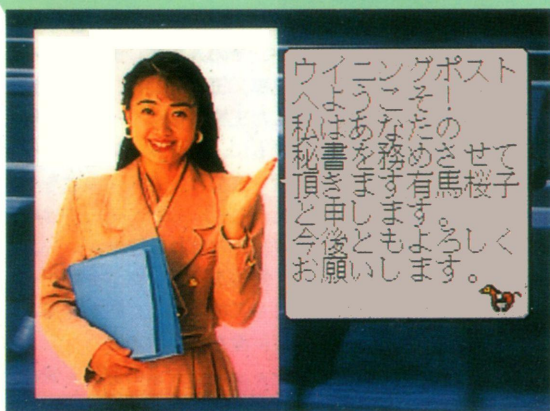 ウイニングポスト
へようこそ！
私はあなたの
秘書を務めさせて
頂きます有馬桜子
と申します。
今後ともよろしく
お願いします。